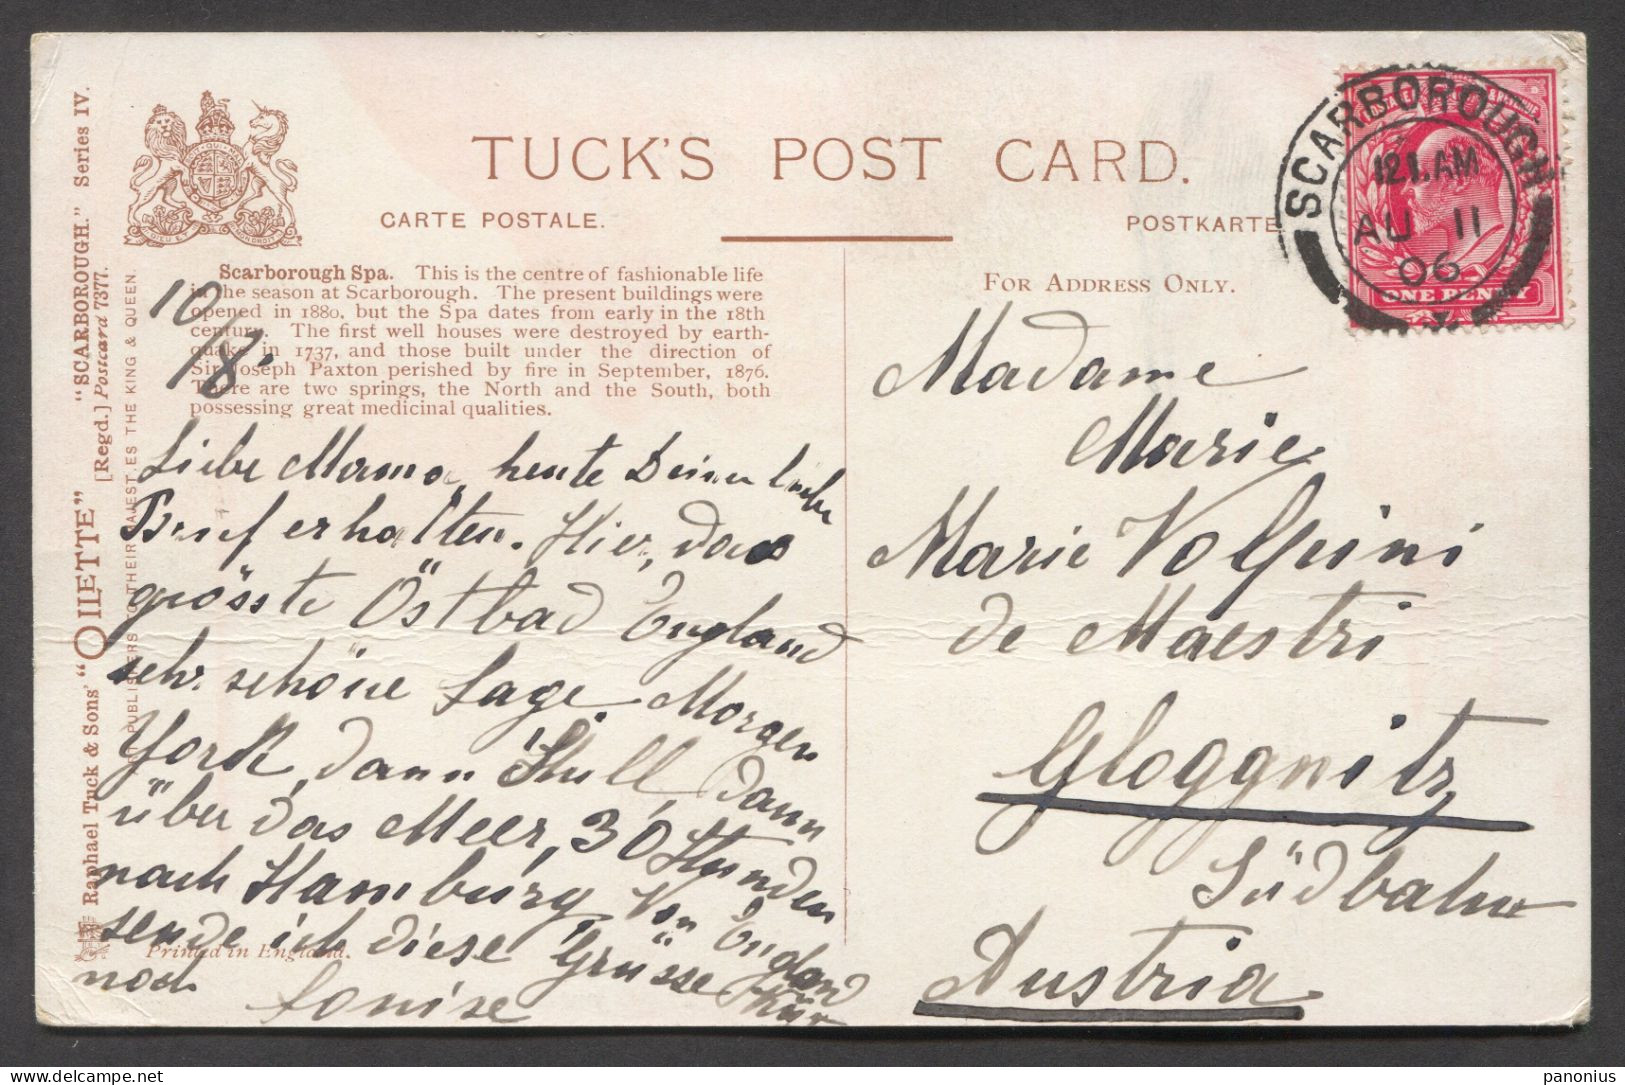 "SCARBOROUGH." Series IV.
Raphael Tuck & Sons' "OILETTE" [Regd.] Postcard 7377.
ART PUBLISHERS TO THEIR MAJESTIES THE KING & QUEEN.
TUCK'S POST CARD.
CARTE POSTALE.
POSTKARTE
SCARBOROUGH
12 1. AM
AU 11
06
ONE PENNY
Scarborough Spa. This is the centre of fashionable life
in the season at Scarborough. The present buildings were
opened in 1880, but the Spa dates from early in the 18th
century. The first well houses were destroyed by earth-
quake in 1737, and those built under the direction of
Sir Joseph Paxton perished by fire in September, 1876.
There are two springs, the North and the South, both
possessing great medicinal qualities.
10/8.
Liebe Mama, heute Deinen liebe
Brief erhalten. Hier, das
grösste Östbad England
sehr schöne Lage. Morgen
York, dann Hull, dann
über das Meer, 30 Stunden
nach Hamburg. Von England
sende ich diese Grüsse
noch
Louise
Printed in England.
FOR ADDRESS ONLY.
Madame
Marie
Marie Volpini
de Maestri
Gloggnitz
Südbahn
Austria
panonius